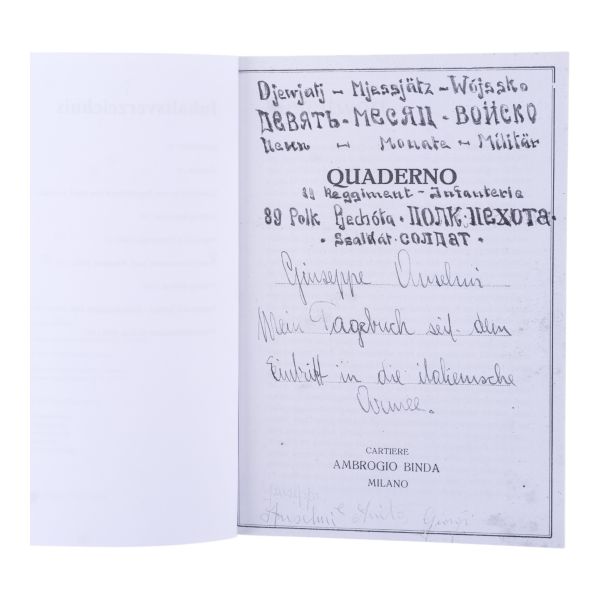 Inhaltsverzeichnis
Djewjatj - Mjessjätz - Wójssko
ДЕВЯТЬ - МЕСЯЦ - ВОЙСКО
Neun - Monate - Militär
QUADERNO
89 Reggiment - Infanterie
89 Polk Pechóta · ПОЛК · ПЕХОТА ·
· Ssaldát · СОЛДАТ ·
Giuseppe Anselmi
Mein Tagebuch seit dem
Eintritt in die italienische
Armee.
CARTIERE
AMBROGIO BINDA
MILANO
Anselmi